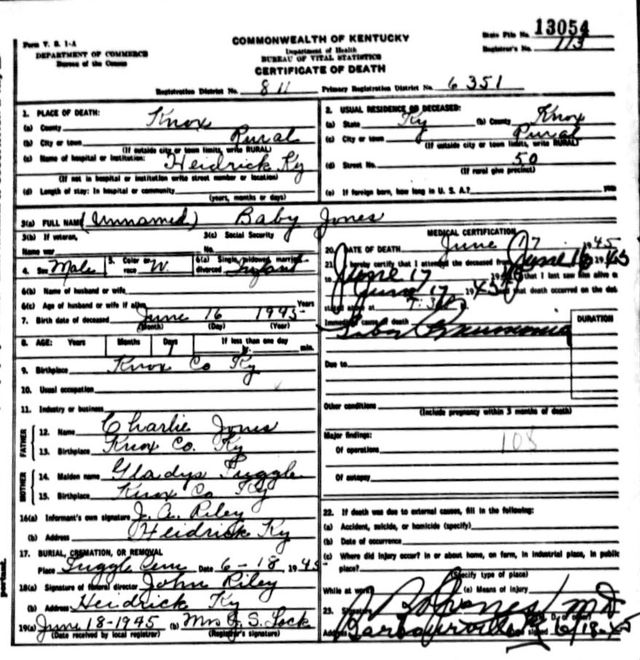 Form V. S. 1-A
DEPARTMENT OF COMMERCE
Bureau of the Census
COMMONWEALTH OF KENTUCKY
Department of Health
BUREAU OF VITAL STATISTICS
CERTIFICATE OF DEATH
State File No. 13054
Registrar's No. 113
Registration District No. 811 Primary Registration District No. 6351
1. PLACE OF DEATH:
(a) County Knox
(b) City or town Rural
(If outside city or town limits, write RURAL)
(c) Name of hospital or institution: Heidrick Ky
(If not in hospital or institution write street number or location)
(d) Length of stay: In hospital or community
(years, months or days)
2. USUAL RESIDENCE OF DECEASED:
(a) State Ky (b) County Knox
(c) City or town Rural
(If outside city or town limits, write RURAL)
(d) Street No. 50
(If rural give precinct)
(e) If foreign born, how long in U. S. A.? years
3(a) FULL NAME (Unnamed) Baby Jones
3(b) If veteran, Name war
3(c) Social Security No.
4. Sex Male 5. Color or race W. 6(a) Single, widowed, married, divorced Infant
6(b) Name of husband or wife
6(c) Age of husband or wife if alive Years
7. Birth date of deceased June 16 1945
(Month) (Day) (Year)
8. AGE: Years Months Days 1 If less than one day hr. min.
9. Birthplace Knox Co Ky
10. Usual occupation
11. Industry or business
FATHER
12. Name Charlie Jones
13. Birthplace Knox Co. Ky
MOTHER
14. Maiden name Gladys Tuggle
15. Birthplace Knox Co Ky
16(a) Informant's own signature J. A. Riley
(b) Address Heidrick Ky
17. BURIAL, CREMATION, OR REMOVAL
Place Tuggle Cem Date 6-18 1945
18(a) Signature of funeral director John Riley
(b) Address Heidrick Ky
19(a) June 18-1945 (b) Mrs J. S. Lock
(Date received by local registrar) (Registrar's signature)
MEDICAL CERTIFICATION
20. DATE OF DEATH June 17 1945
21. I hereby certify that I attended the deceased from June 16 1945
June 17 1945 that I last saw him alive on
June 17 1945 that death occurred on the date
stated above at
Immediate cause of death Lobar Pneumonia
DURATION
Due to
Other conditions
(Include pregnancy within 3 months of death)
Major findings:
Of operations 108
Of autopsy
22. If death was due to external causes, fill in the following:
(a) Accident, suicide, or homicide (specify)
(b) Date of occurrence
(c) Where did injury occur? In or about home, on farm, in industrial place, in public
place?
(Specify type of place)
While at work? (e) Means of injury
23. Signature Jones M D
Address Barbourville Date signed 6/18-45